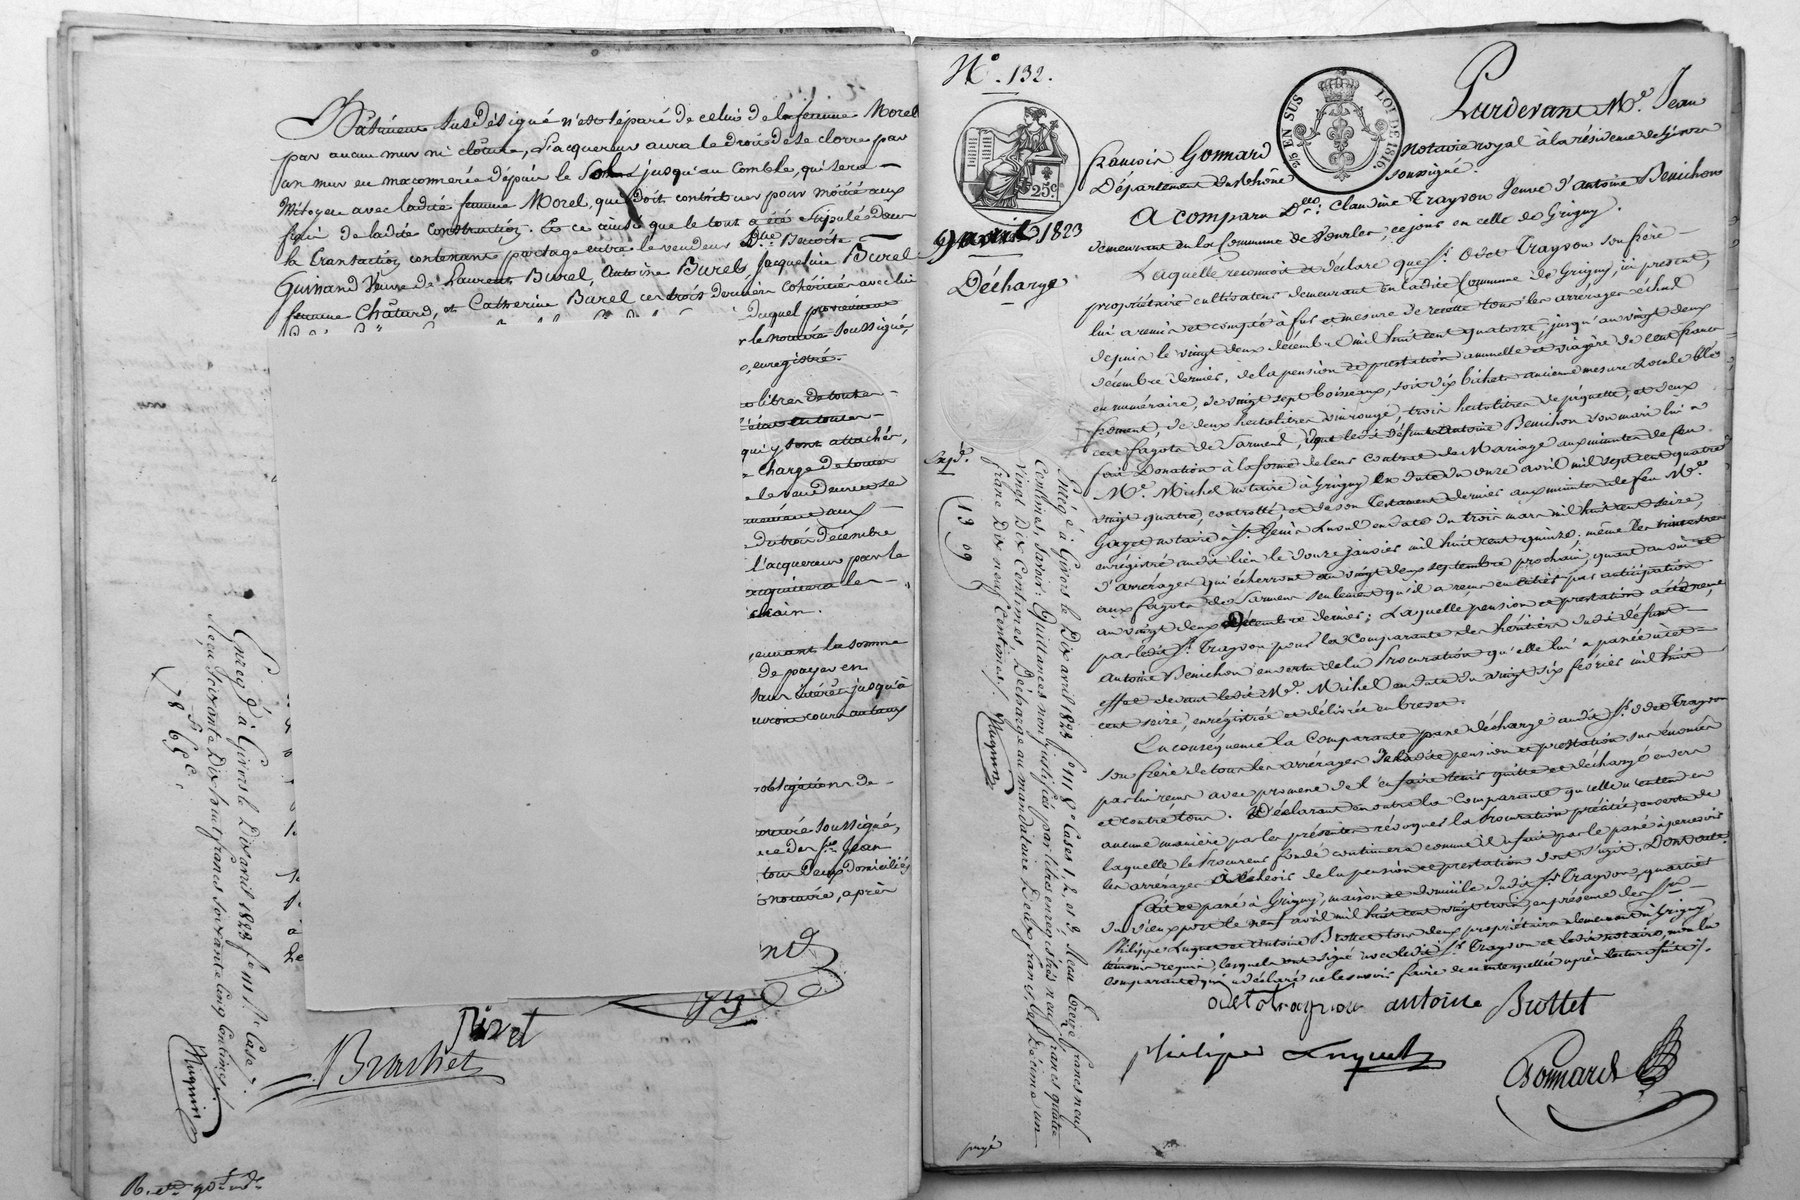 Bâtiment susdésigné n'est séparé de celui de la femme Morel
par aucun mur ni clôture, l'acquereur aura le droit de se clorre par
un mur en maconnerie depuis le Sol jusqu'au comble, qui sera
Mitoyen avec ladite femme Morel, qui doit contribuer pour moitié aux
frais de ladite construction. Et ce ainsi que le tout a été stipulé dans
la transaction contenant partage entre le vendeur Dme. Benoite
Guinand Veuve de Laurent Burel, Antoine Burel, Jacqueline Burel
femme Châtard, et Catherine Burel ces trois derniers cohéritiers avec lui
duquel
le notaire soussigné,
enregistré.
libres de toutes
qui y sont attachés,
charge de toutes
aux
du trois décembre
l'acquereur par le
acquittera les
la somme
de payer en
sans intérêt jusqu'à
cours au taux
obligations de
notaire soussigné,
des srs. Jean
tous deux domiciliés
notaire, après
Pivet
Brachet
Enregt. à Givors le Dix avril 1823 fo. 111 Ro. Case 7.
Reçu Soixante Dix-huit francs soixante cinq Centimes.
78 65
Nugnin
No. 132.
25 EN SUS
LOI DE 1816.
25c
9 avril 1823
Décharge
Expd.
13 09
Purdevant Me. Jean
françois Gonnard notaire royal à la résidence de Givors
Département du Rhône soussigné.
A comparu Dme. Claudine Trayvon Veuve d'Antoine Benichon
demeurant en la Commune de Vourles, ce jour en celle de Grigny.
Laquelle reconnoit et déclare que Sr. Odet Trayvon son frère
propriétaire cultivateur demeurant en ladite Commune de Grigny, ici présent,
lui a remis et compté à fur et mesure de recette tous les arrérages échus
depuis le vingt deux décembre mil huit cent quatorze, jusqu'au vingt deux
décembre dernier, de la pension et prestation annuelle et viagère de cent francs
en numéraire, de vingt sept boisseaux, soit dix bichets ancienne mesure locale blé
froment, de deux hectolitres vin rouge, trois hectolitres de piquette, et deux
cent fagots de sarment, dont ledit défunt Antoine Benichon son mari lui a
fait Donation à la forme de leur contrat de Mariage aux minutes de feu
Me. Michel notaire à Grigny en date du onze avril mil sept cent quatre
vingt quatre, controllé, et de son Testament dernier aux minutes de feu Me.
notaire à St. Genis Laval en date du trois mars mil huit cent
enregistré audit lieu le douze janvier mil huit cent quinze, même les trimestres
d'arrérages qui écherront au vingt deux septembre prochain, quant au vin et
aux fagots de Sarment seulement qu'il a remis en espèces par anticipation
au vingt deux Décembre dernier; Laquelle pension et prestation a été remise
par ledit Sr. Trayvon pour la Comparante des héritiers dudit défunt
Antoine Benichon en vertu de la Procuration qu'elle lui a passée à cet
effet devant ledit Me. Michel en date du vingt six février mil huit
cent seize, enregistrée et délivrée en brevet.
En conséquence la Comparante passe décharge audit Sr. Odet Trayvon
son frère de tous les arrérages de ladite pension et prestation sus énoncés
par lui reçus avec promesse de l'en faire tenir quitte et déchargé envers
et contre tous. Déclarant en outre la Comparante qu'elle n'entend en
aucune manière par les présentes révoquer la Procuration précitée, en vertu de
laquelle le Procureur fondé continuera comme il a fait par le passé à percevoir
les arrérages à échoir de la pension et prestation dont s'agit. Dont acte.
fait et passé à Grigny, maison et domicile dudit Sr. Trayvon, quartier
du vieux port le neuf avril mil huit cent vingt trois, en présence des srs.
Philippe Luquet et Antoine Brottet tous deux propriétaires demeurant à Grigny
témoins requis, lesquels ont signé avec ledit Sr. Trayvon et ledit notaire, non la
comparante qui a déclaré ne le savoir faire de ce interpellée après lecture faite.
odet trayvon antoine Brottet
philippe Luquet
Gonnard
Enregt. à Givors le Dix avril 1823 fo. 111 Ro. Cases 1, 2, et 3. Reçu treize francs neuf
Centimes, savoir: Quittances non justifiées par titres enregistrés neuf francs quatre
vingt Dix Centimes, Décharge au mandataire Deux francs, et Décime un
franc Dix neuf Centimes.
Nugnin
payé